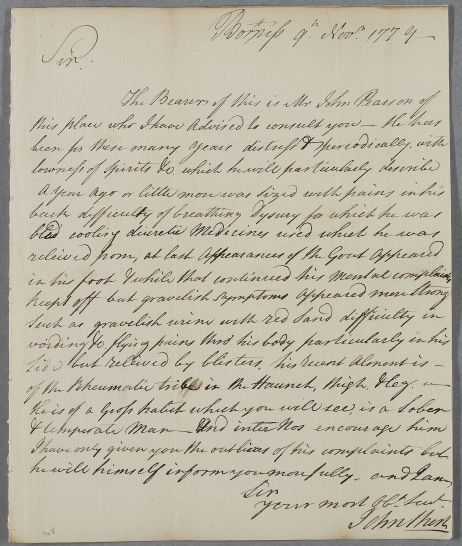 Borness 9th Novr. 1779
Sir.
The Bearer of this is Mr John Pearson of
this place who I have advised to consult you — He has
been for these many years distrest & periodically with
lowness of spirits &c which he will particularly describe
a year ago or little more was sized with pains in his
back difficulty of breathing Dysury for which he was
bled cooling diuretic Medicines used which he was
releived from, at last Appearances of the Gout appeared
in his foot & while that continued his Mental complaints
keept off but gravelish symptoms appeared more strong
such as gravelish urine with red sand difficulty in
voiding & flying pains thro his body particularly in his
side but releived by blisters, his recent Alment is —
of the Rheumatic tribe in the Haunch, thigh, & leg.
He is of a Gross habit which you will see, is a Sober
& temperate Man — And inter Nos encourage him
I have only given you the outlines of his complaints but
he will himself inform you more fully. and I am
Sir
your most Obt. Servt.
John